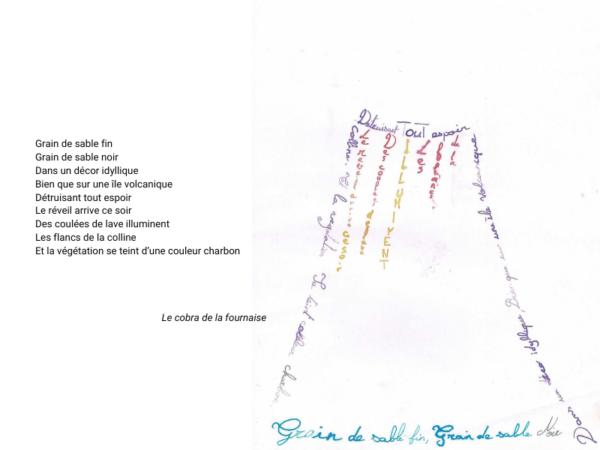 Grain de sable fin
Grain de sable noir
Dans un décor idyllique
Bien que sur une île volcanique
Détruisant tout espoir
Le réveil arrive ce soir
Des coulées de lave illuminent
Les flancs de la colline
Et la végétation se teint d’une couleur charbon
Le cobra de la fournaise
Détruisant Tout espoir
Le réveil arrive ce soir
Des coulées de lave
ILLUMINENT
Les
flancs
de la
colline
Et la végétation Se teint couleur charbon
Dans un décor idyllique, Bien que sur une île volcanique
Grain de sable fin, Grain de sable Noir